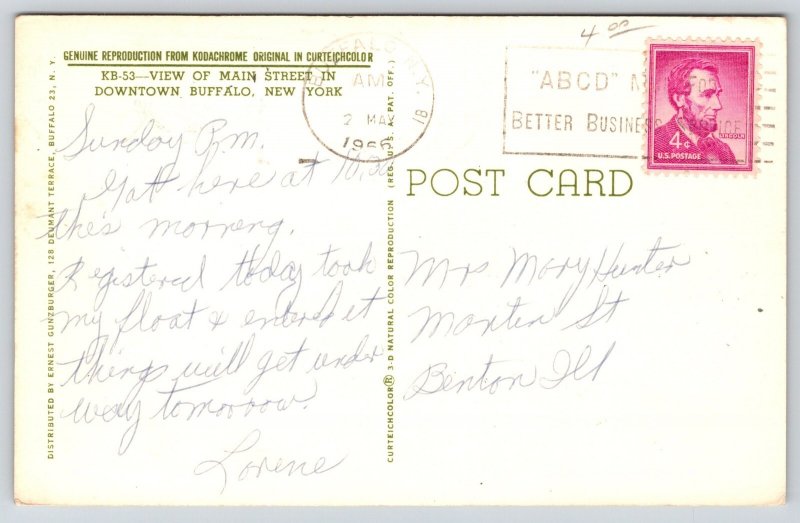 4 00
GENUINE REPRODUCTION FROM KODACHROME ORIGINAL IN CURTEICHCOLOR
KB-53—VIEW OF MAIN STREET IN
DOWNTOWN BUFFALO, NEW YORK
Sunday P.m.
Gott here at 10,20
this morning.
Registered today took
my float & entered it
things will get under
way tomorrow.
Lorene
DISTRIBUTED BY ERNEST GUNZBURGER, 128 DEUMANT TERRACE, BUFFALO 23, N. Y.
CURTEICHCOLOR® 3-D NATURAL COLOR REPRODUCTION (REG. U.S.A. PAT. OFF.)
BUFFALO, N.Y. 18
AM
2 MAY
1960
"ABCD"
BETTER BUSINESS
LINCOLN
4¢
U.S. POSTAGE
POST CARD
Mrs Mary Hunter
Monten St
Benton Ill